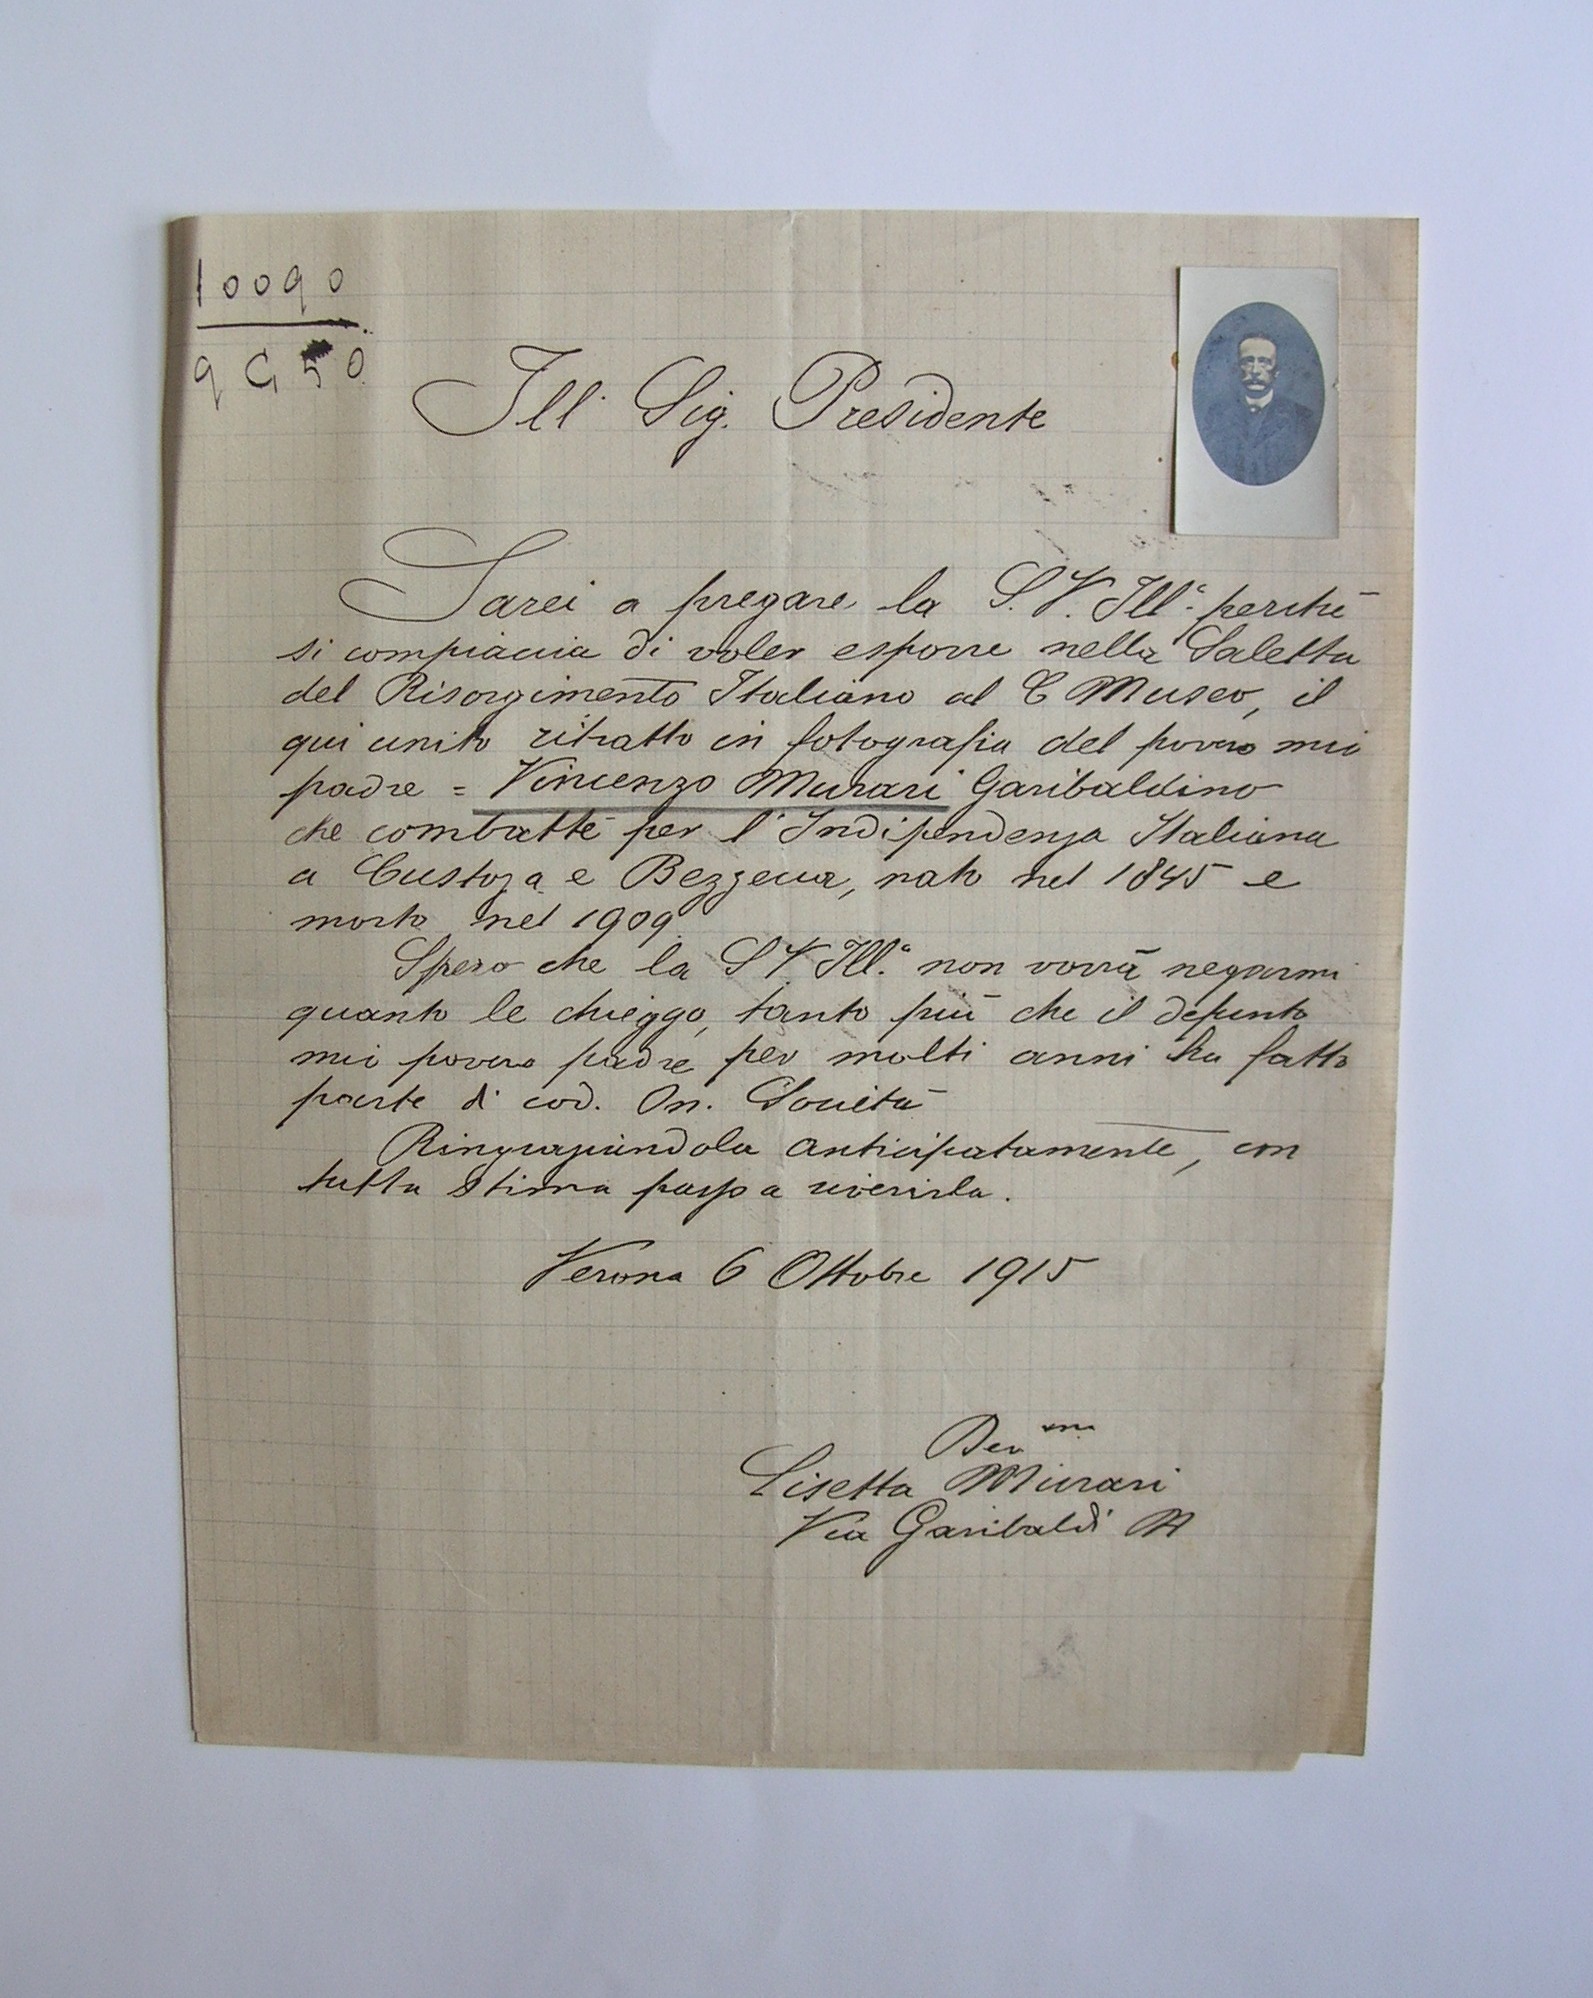 10090
9G50
Ill. Sig. Presidente
Sarei a pregare la S.V. Illª. perchè
si compiaccia di voler esporre nella Saletta
del Risorgimento Italiano al C Museo, il
qui unito ritratto in fotografia del povero mio
padre = Vincenzo Murari Garibaldino
che combattè per l'Indipendenza Italiana
a Custoza e Bezzecca, nato nel 1845 e
morto nel 1909
Spero che la S V Ill.ª non vorrà negarmi
quanto le chieggo, tanto più che il defunto
mio povero padre per molti anni ha fatto
parte di cod. On. Società
Ringraziandola anticipatamente, con
tutta stima passo a riverirla.
Verona 6 Ottobre 1915
Devma
Lisetta Murari
Via Garibaldi